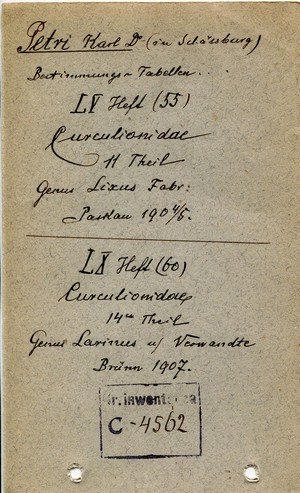 Petri Karl Dr (in Schässburg)
Bestimmungs-Tabellen . .
LV Heft (55)
Curculionidae
11 Theil
Genus Lixus Fabr:
Paskau 1904/5.
LX Heft (60)
Curculionidae
14ter Theil
Genus Larinus u/ Verwandte
Brünn 1907.
Nr. inwentarza
C-4562